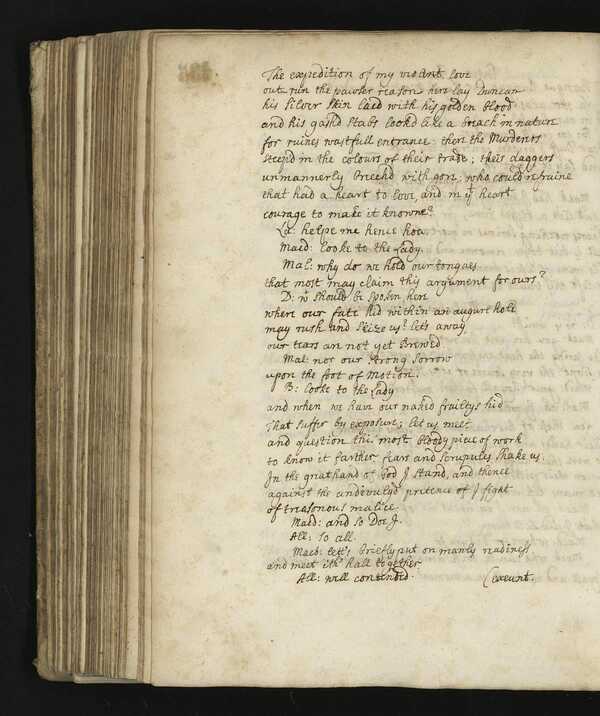 The expedition of my violent love
out run the pawser reason here lay Duncan
his silver skin laced with his golden blood
and his gashd stabs lookd like a breach in nature
for ruines wastfull entrance: there the Murderers
steepd in the colours of their trade; their daggers
unmannerly breechd with gore; who could refraine
that had a heart to love, and in yt heart
courage to make it knowne?
La: helpe me hence hoa.
Macd: looke to the Lady.
Mal: why do we hold our tongues
that most may claim this argument for ours?
D: wt should be spoken here
where our fate hid within an augure hole
may rush and seize us? lets away
our tears are not yet Brewed.
Mal: nor our strong sorrow
upon the foot of Motion.
B: looke to the Lady
and when we have our naked frailtys hid
that suffer by exposure; let us meet
and question this most bloody piece of work
to know it farther fears and scruples shake us.
In the great hand of God I stand, and thence
against the undivulgd pretence of I fight
of treasonous malice.
Macd: and so Doe I.
All: so all.
Macb: let's briefly put on manly readiness
and meet ith' hall together
All: well contended. (exeunt.